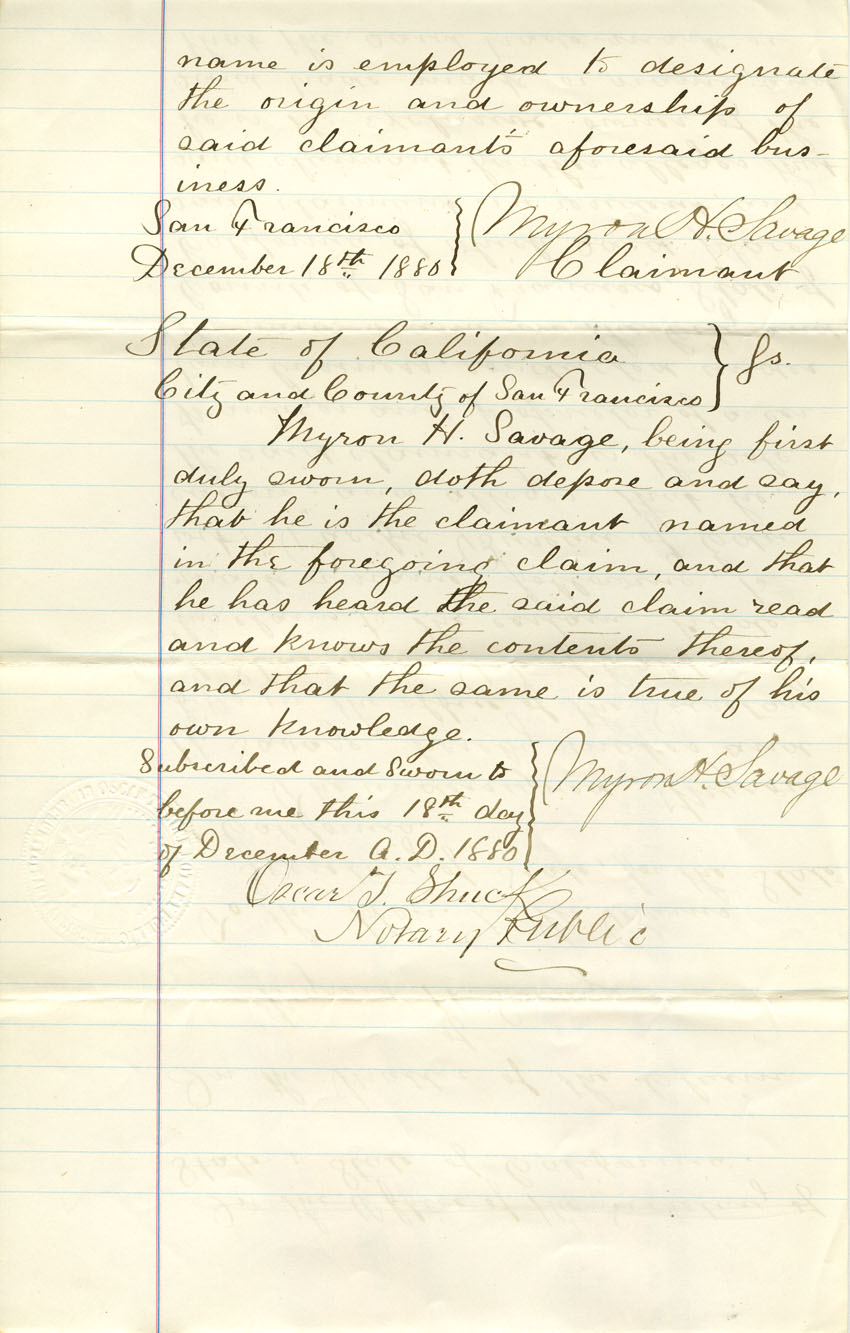 name is employed to designate
the origin and ownership of
said claimant's aforesaid bus-
iness.
San Francisco
December 18th 1880
Myron H. Savage
Claimant
State of California
City and County of San Francisco
Ss.
Myron H. Savage, being first
duly sworn, doth depose and say,
that he is the claimant named
in the foregoing claim, and that
he has heard the said claim read
and knows the contents thereof,
and that the same is true of his
own knowledge.
Subscribed and Sworn to
before me this 18th day
of December A.D. 1880
Myron H. Savage
Oscar T. Shuck
Notary Public